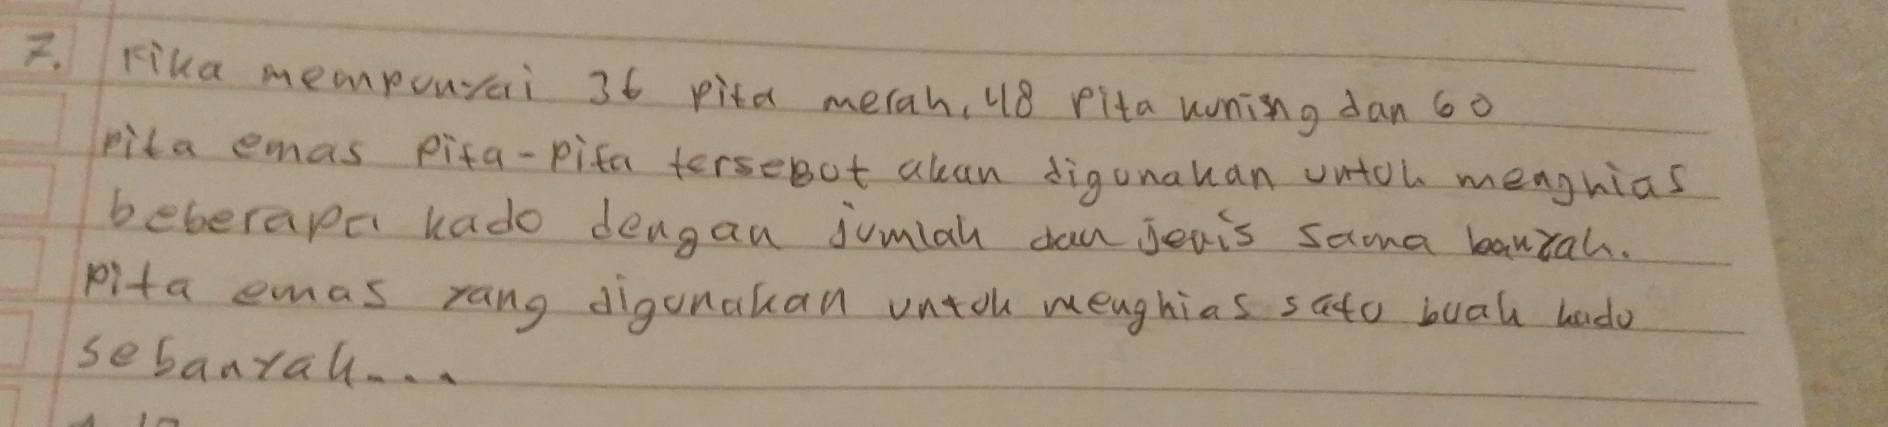 7. rika mempunyai 36 pita merah, 48 pita kuning dan 60
pita emas pita-pita tersebut akan digunakan untuk menghias
beberapa kado dengan jumlah dan jenis sama banyak.
pita emas yang digunakan untuk menghias satu buah kado
sebanyak...